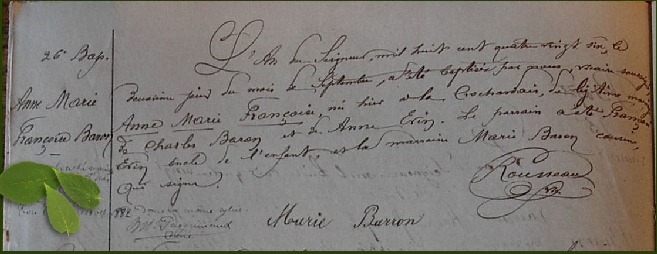 26e Bap.
Anne Marie
Françoise Baron
L'An du Seigneur, mil huit cent quatre vingt six, le
deuxième jour du mois de Septembre, a été baptisée par nous, vicaire soussigné
Anne Marie Françoise, née hier à la Crochardais, du légitime mariage
de Charles Baron et de Anne Erin. Le parrain a été François
Erin oncle de l'enfant et la marraine Marie Baron cousine,
qui signe.
Rousseau
Marie Barron